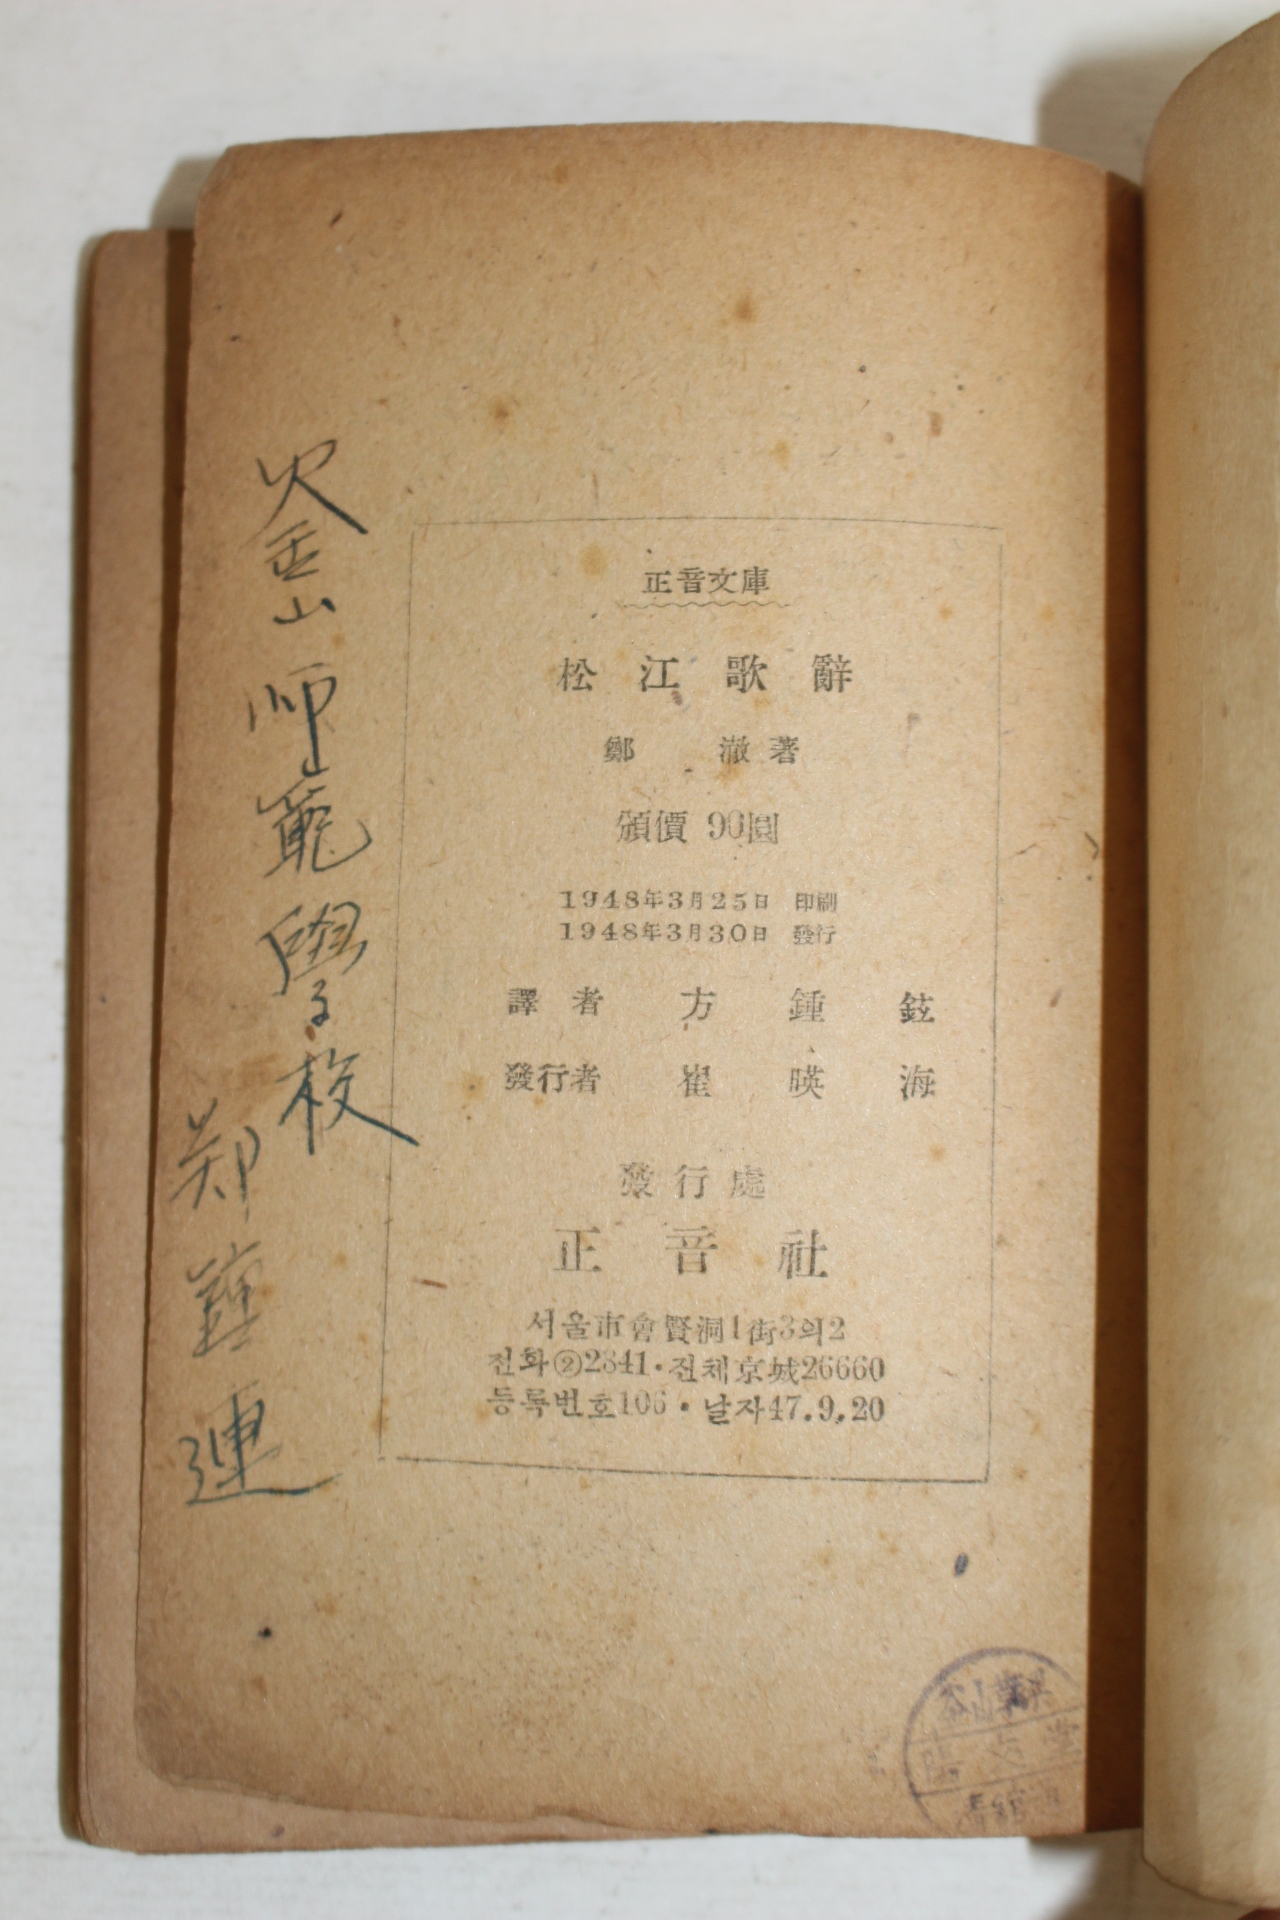 正音文庫
松江歌辭
鄭 澈 著
頒價 90圓
1948年3月25日 印刷
1948年3月30日 發行
譯者 方鍾鉉
發行者 崔暎海
發行處
正音社
서울市會賢洞1街3의2
전화②2841·진체京城26660
등록번호106·날자47.9.20
釜山師範學校
鄭鍾連
釜山
堂